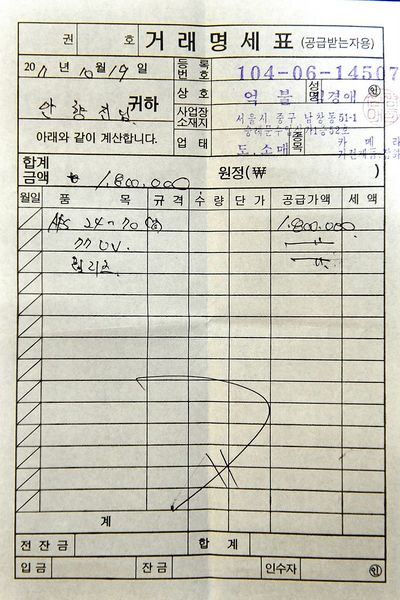 권 호 거래명세표 (공급받는자용)
2011년 10월 19일
등록번호 104-06-14507
귀하
상호 억불 성명 경애 ㊞
아래와 같이 계산합니다.
사업장소재지 서울시 중구 남창동 51-1
업태 도.소매 종목 카메라
합계금액 1,800,000 원정(₩ )
월일 품목 규격 수량 단가 공급가액 세액
24-70 1,800,000
77 UV.
계
전잔금 합계
입금 잔금 인수자 ㊞